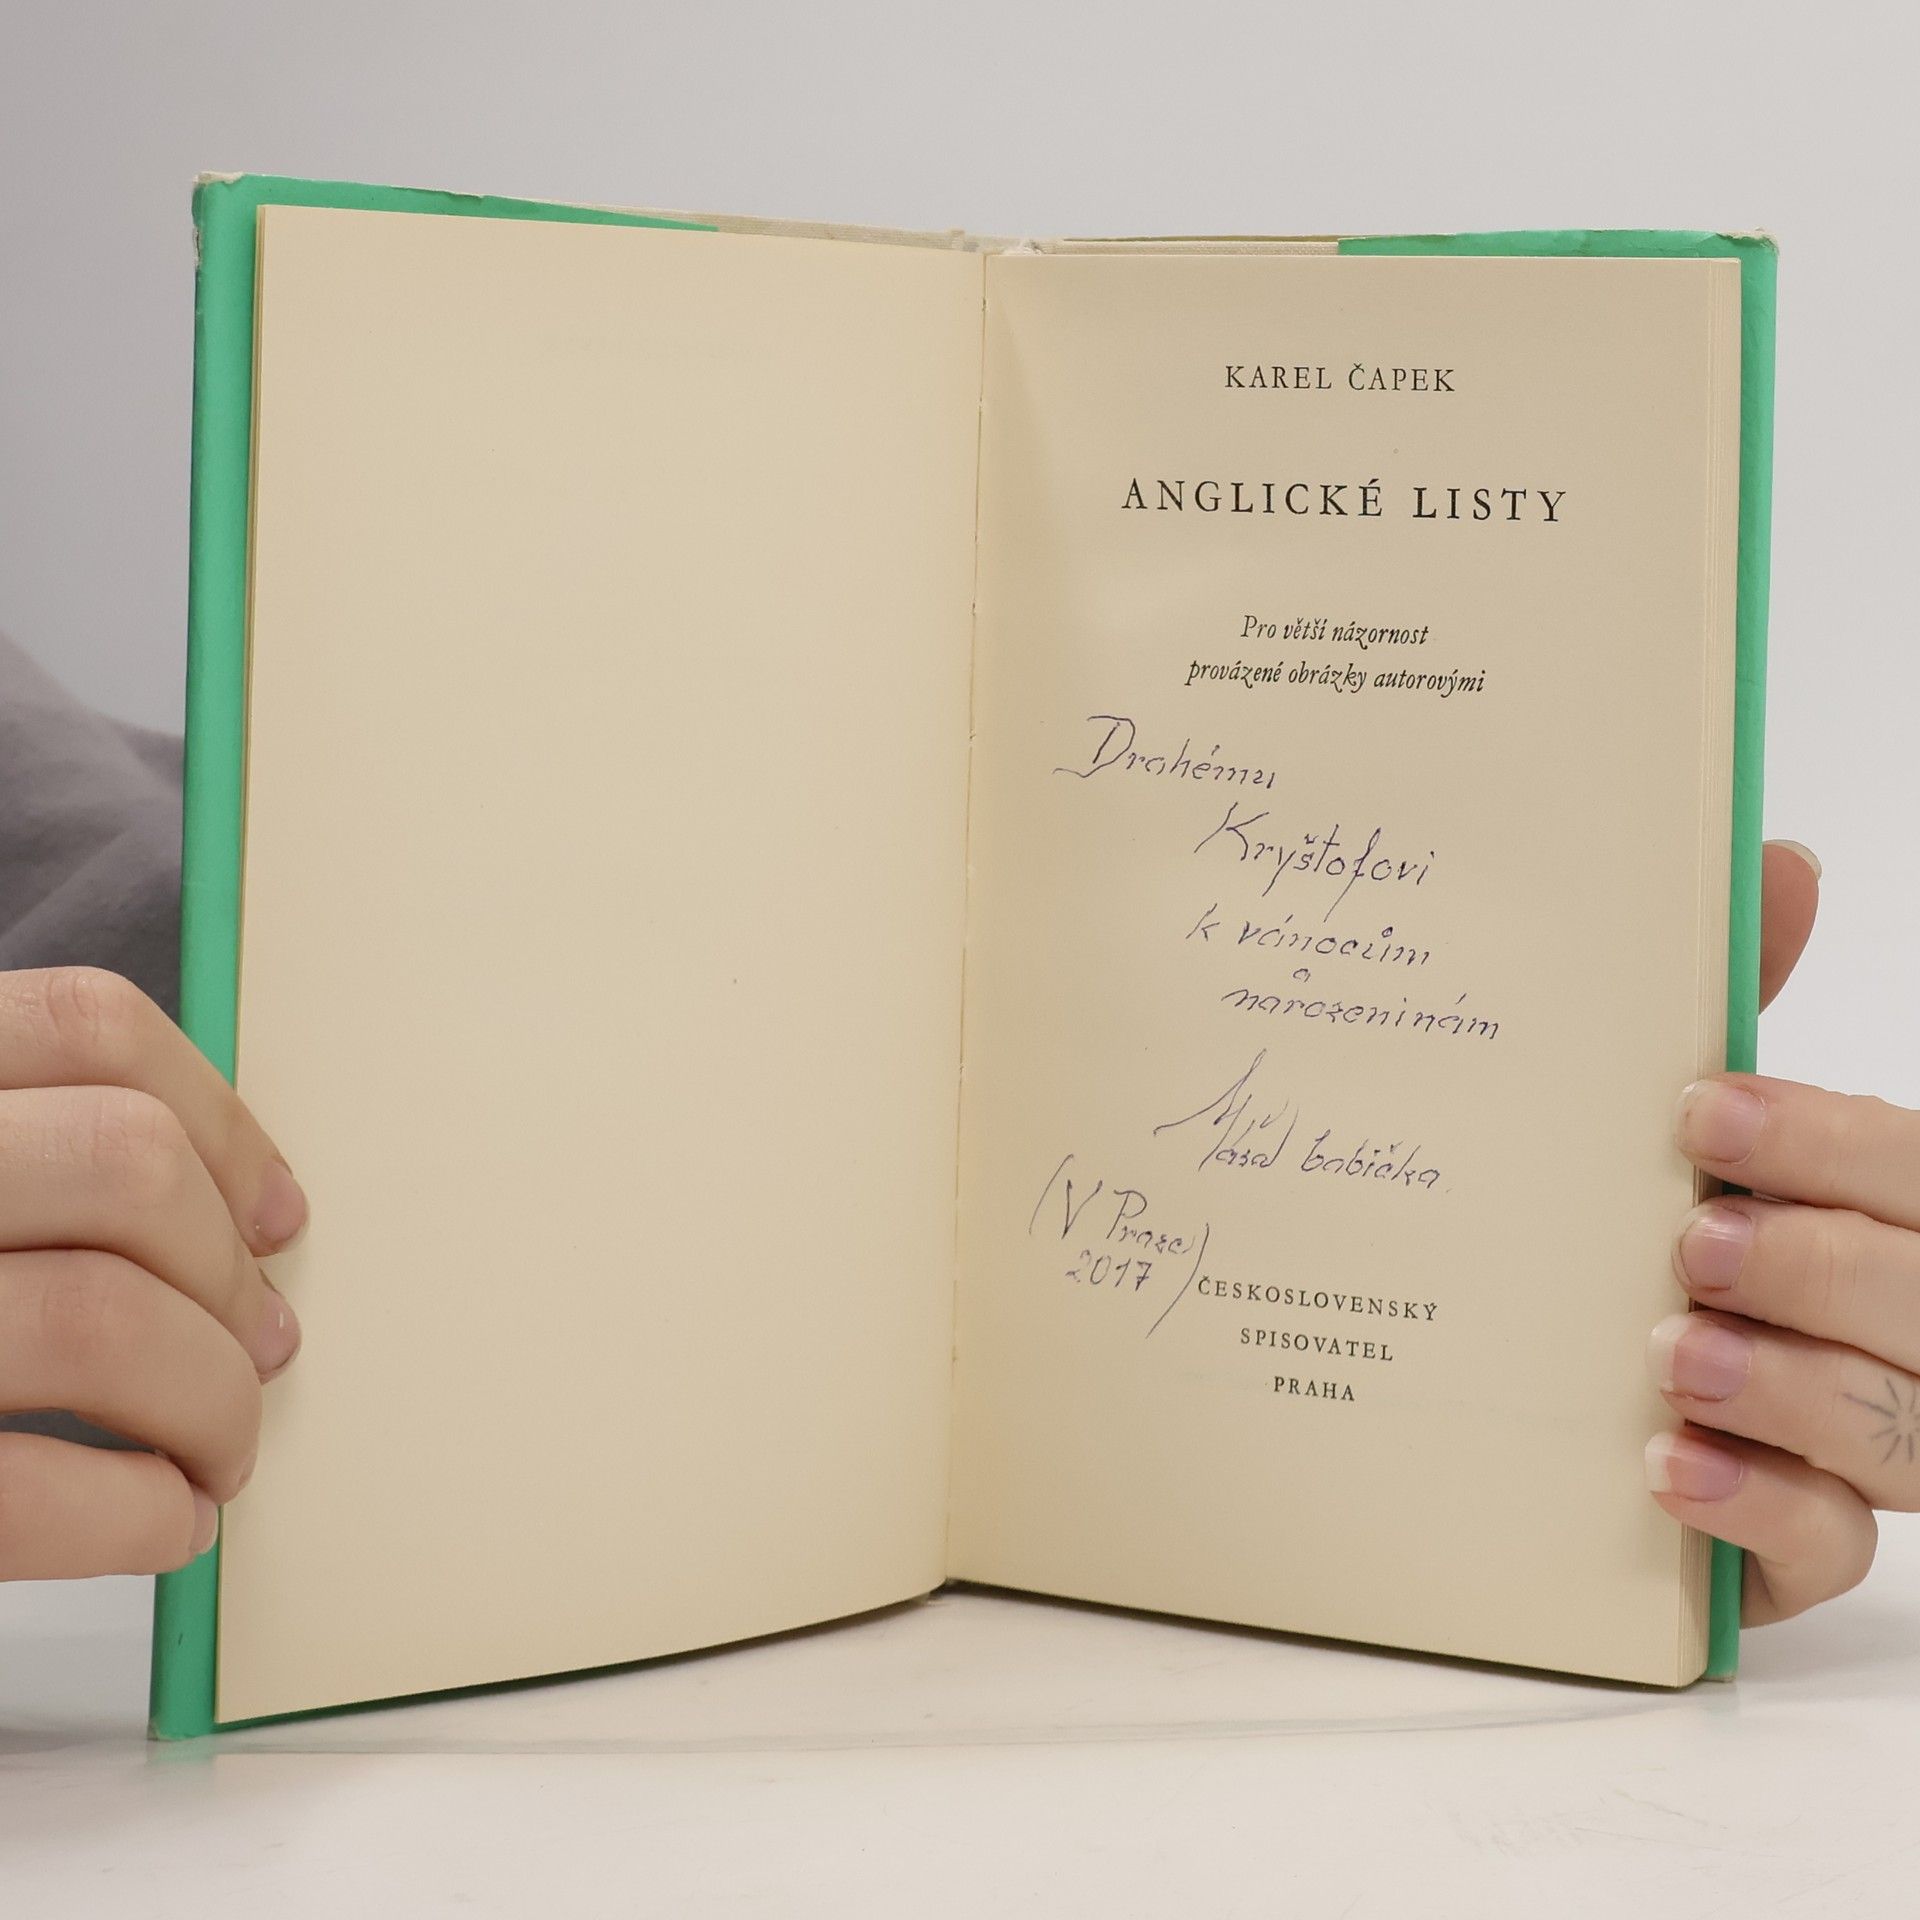 KAREL ČAPEK
ANGLICKÉ LISTY
Pro větší názornost
provázené obrázky autorovými
Drahému
Kryštofovi
k vánocům
a
narozeninám
babička.
(V Praze
2017)
ČESKOSLOVENSKÝ
SPISOVATEL
PRAHA